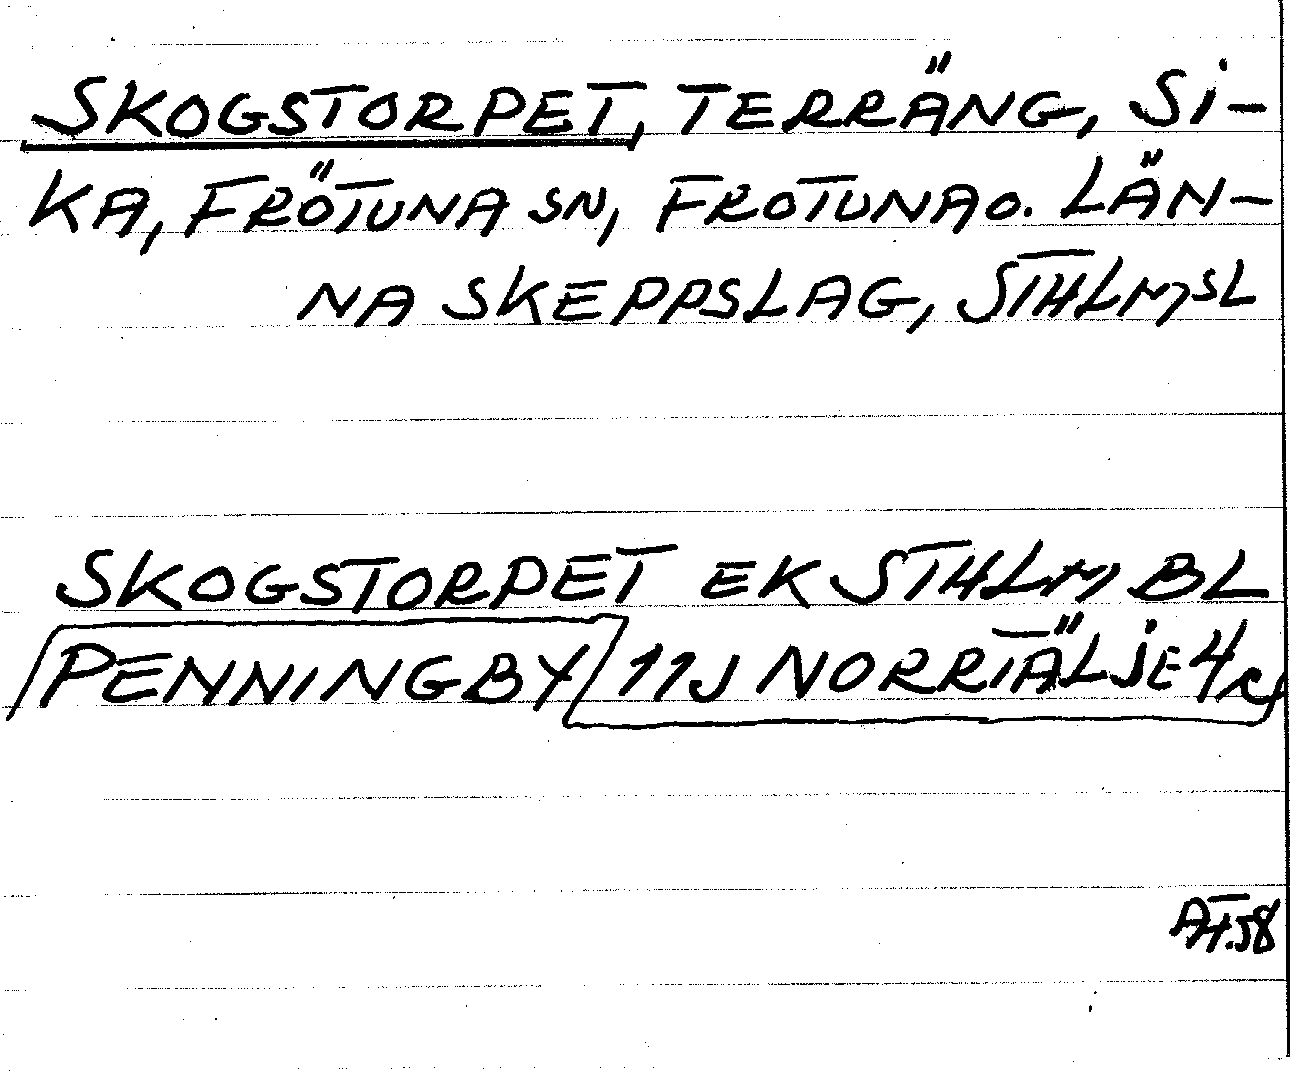 SKOGSTORPET, TERRÄNG, SI-
KA, FRÖTUNA SN, FROTUNA O. LÄN-
NA SKEPPSLAG, STHLM, SL
SKOGSTORPET EK STHLM BL
PENNINGBY 11J NORRTÄLJE 4/c
AT.58